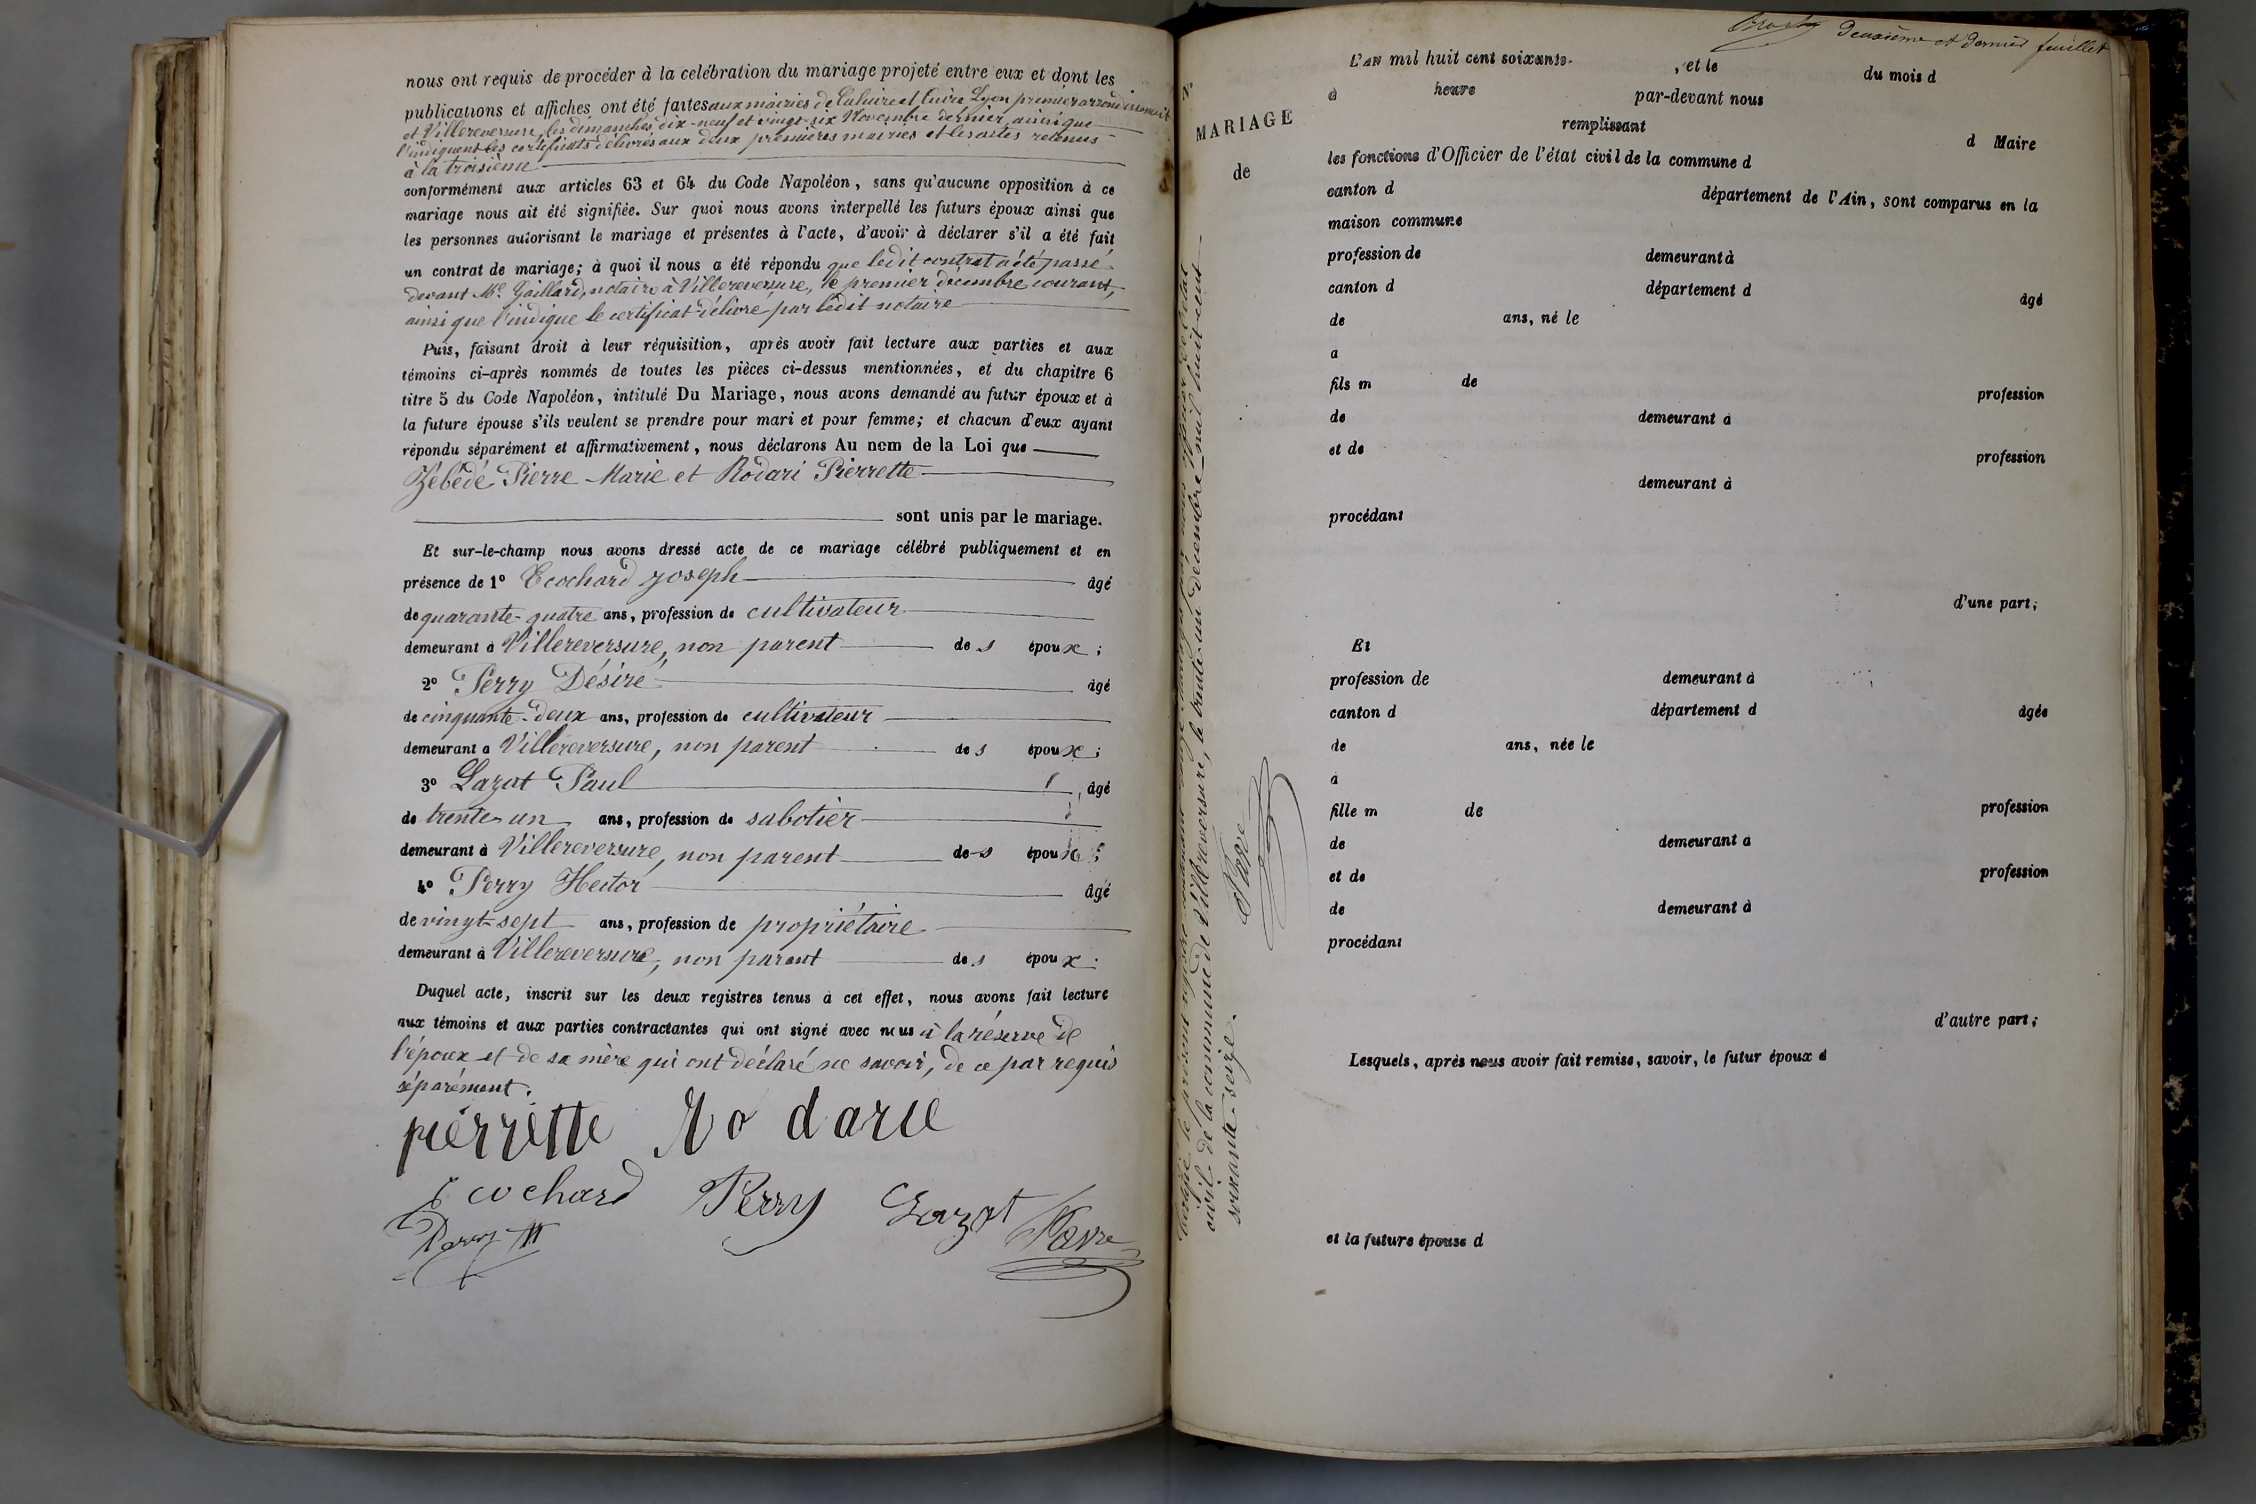 nous ont requis de procéder à la celébration du mariage projeté entre eux et dont les
publications et affiches ont été faites aux mairies de Caluire et Cuire Lyon premier arrondissement
et Villereversure, les dimanches dix-neuf et vingt-six Novembre dernier, ainsi que
l'indiquent les certificats délivrés aux deux premières mairies et les actes retenus
à la troisième
conformément aux articles 63 et 64 du Code Napoléon, sans qu'aucune opposition à ce
mariage nous ait été signifiée. Sur quoi nous avons interpellé les futurs époux ainsi que
les personnes autorisant le mariage et présentes à l'acte, d'avoir à déclarer s'il a été fait
un contrat de mariage; à quoi il nous a été répondu que ledit contrat a été passé
devant Me Gaillard, notaire à Villereversure, le premier décembre courant,
ainsi que l'indique le certificat délivré par ledit notaire
Puis, faisant droit à leur réquisition, après avoir fait lecture aux parties et aux
témoins ci-après nommés de toutes les pièces ci-dessus mentionnées, et du chapitre 6
titre 5 du Code Napoléon, intitulé Du Mariage, nous avons demandé au futur époux et à
la future épouse s'ils veulent se prendre pour mari et pour femme; et chacun d'eux ayant
répondu séparément et affirmativement, nous déclarons Au nom de la Loi que
Zébédé Pierre Marie et Rodari Pierrette
sont unis par le mariage.
Et sur-le-champ nous avons dressé acte de ce mariage célébré publiquement et en
présence de 1° Ecochard Joseph âgé
de quarante-quatre ans, profession de cultivateur
demeurant à Villereversure, non parent des époux;
2° Perry Désiré âgé
de cinquante-deux ans, profession de cultivateur
demeurant à Villereversure, non parent des époux;
3° Lazat Paul âgé
de trente-un ans, profession de sabotier
demeurant à Villereversure, non parent des époux;
4° Perry Hector âgé
de vingt-sept ans, profession de propriétaire
demeurant à Villereversure, non parent des époux.
Duquel acte, inscrit sur les deux registres tenus à cet effet, nous avons fait lecture
aux témoins et aux parties contractantes qui ont signé avec nous à la réserve de
l'époux et de sa mère qui ont déclaré ne savoir, de ce par requis
séparément.
pierrette Rodarie
Ecochard Perry Lazat
Perry H Favre
deuxième et dernier feuillet
MARIAGE
de
L'AN mil huit cent soixante- , et le du mois d
à heure par-devant nous
remplissant d Maire
les fonctions d'Officier de l'état civil de la commune d
canton d département de l'Ain, sont comparus en la
maison commune
profession de demeurant à
canton d département d âgé
de ans, né le
a
fils m de profession
de demeurant à
et de profession
demeurant à
procédant
d'une part;
Et
profession de demeurant à
canton d département d âgée
de ans, née le
à
fille m de profession
de demeurant a
et de profession
de demeurant à
procédant
d'autre part;
Lesquels, après nous avoir fait remise, savoir, le futur époux d
et la future épouse d
civil de la commune de Villereversure, le trente-un décembre mil huit cent
soixante-seize.
Favre